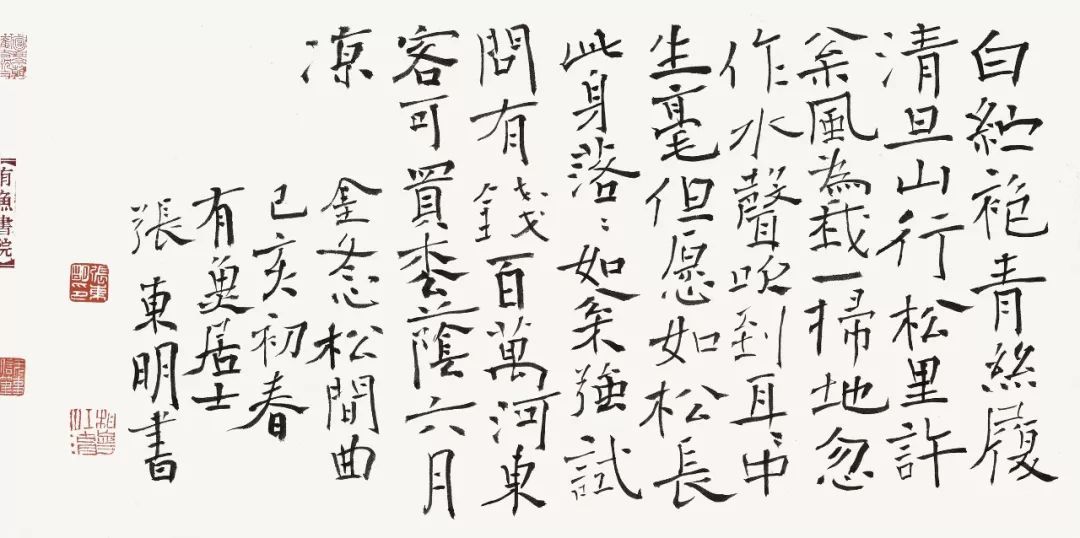 白紵袍青絲履
清旦山行松里許
枀風為我一掃地忽
作水聲吹到耳〻中
生毫但愿如松長
此身落〻如枀強試
問有錢百萬河東
客可買枩陰六月
凉
金冬心松間曲
己亥初春
有魚居士
張東明書
張東明印
有漁書院